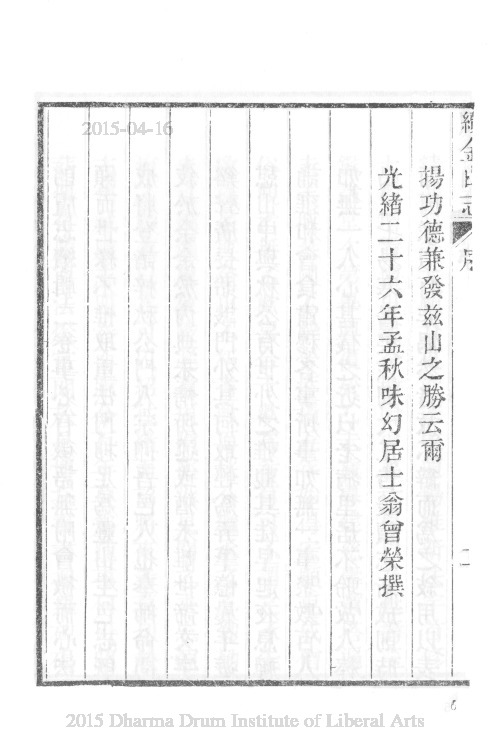 續金山志 序 二
揚功德兼發茲山之勝云爾
光緒二十六年孟秋味幻居士翁曾榮撰
2015-04-16
6
2015 Dharma Drum Institute of Liberal Arts